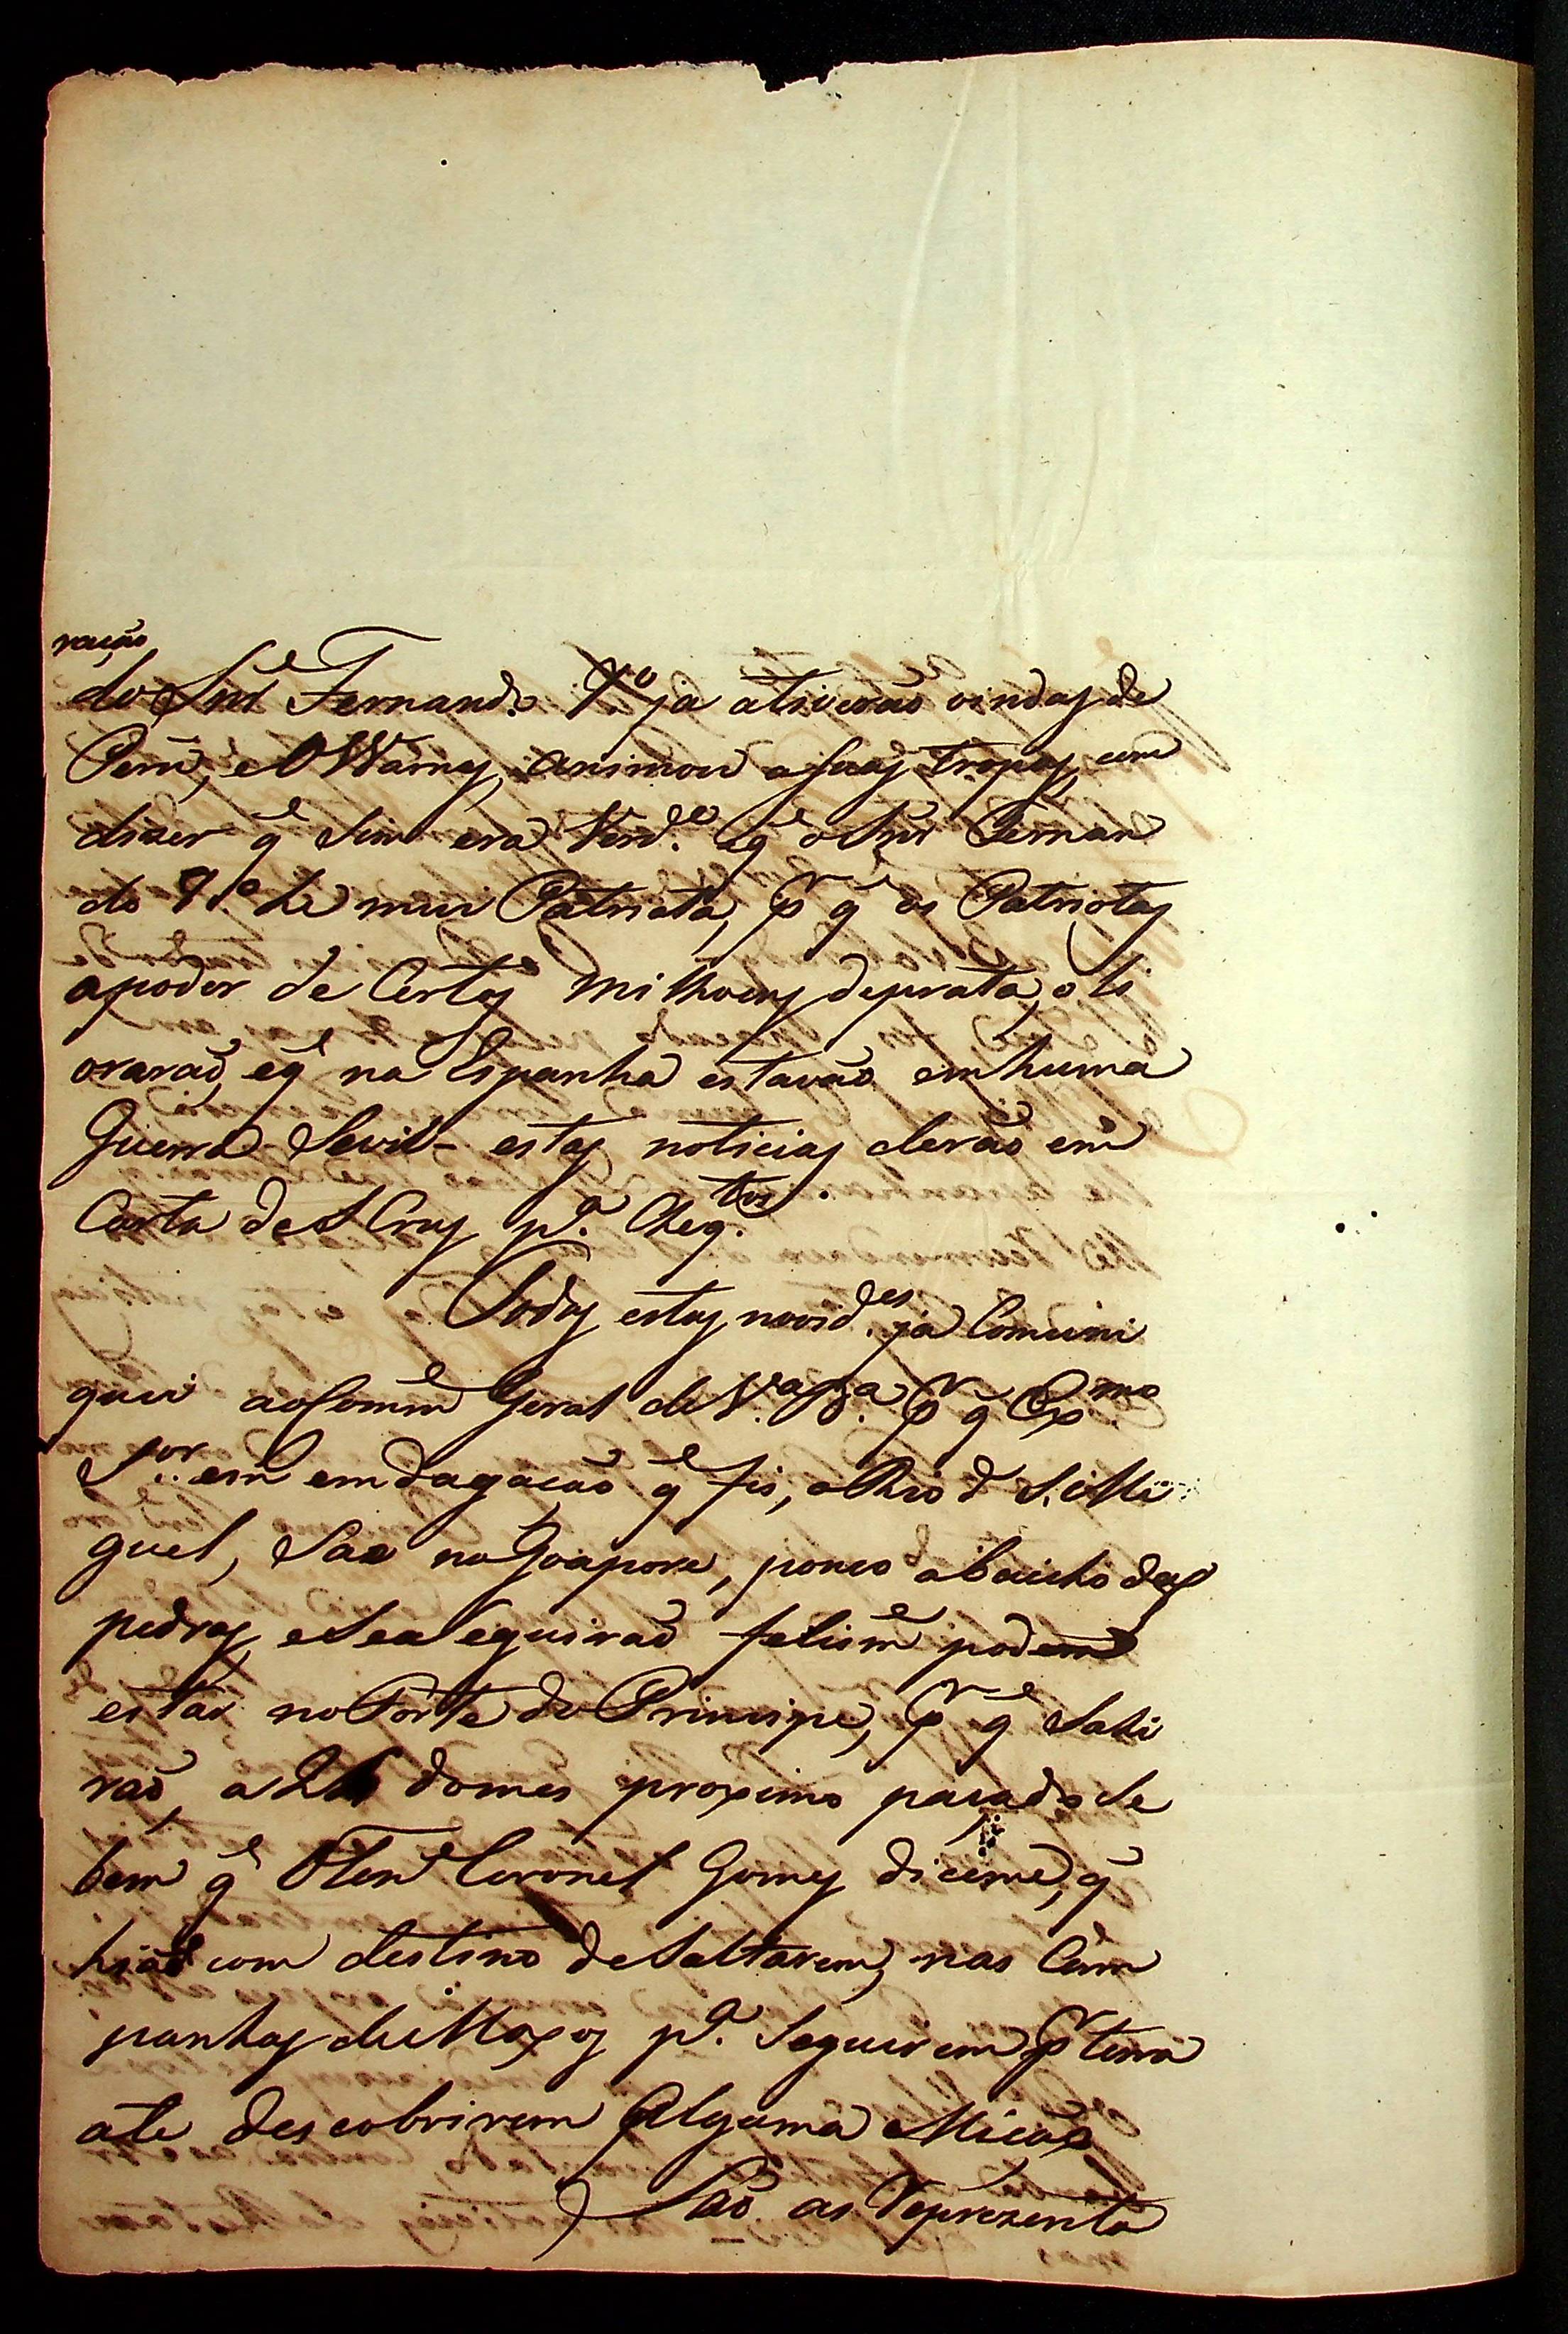 ração
do Snr͂ Fernando 7º ja ativerão vindas de
Perú, e O Warnes, animou a suas Tropas, com
diser q̃ sim era Verd.e eq̃ o Snr͂ Fernan
do 7º he mui Patriota, pr q̃ os Patriotas
apoder de Certos milhoens deprata, o li
vrarão, eq̃ na Espanha estavão em huma
Guerra Sevil - estas noticias derão em
Carta de S Cruz pª. Cheq.tos.
Todas estas novid.es ja Comuni
quei ao Comm̃ Geral de V.ª B.ª pr q̃ Exmo
Sor. em emdagação q̃ fis, o Rio d S. Mi
guel, Sae no Goapore, pouco abaicho das
pedras, e Sea Seguirão felism̃ podem
estar no Forte do Principe, pr q̃ Sahi
rão, a 26 domes proximo paçado se
bem q̃ OTen͂ Coronel Gomes diceme, q̃
hião com destino de Saltarem, nas Cam
panhas de Moxos pª. Seguirem pr terra
ate descobrirem Alguma Micão
São as Reprezenta